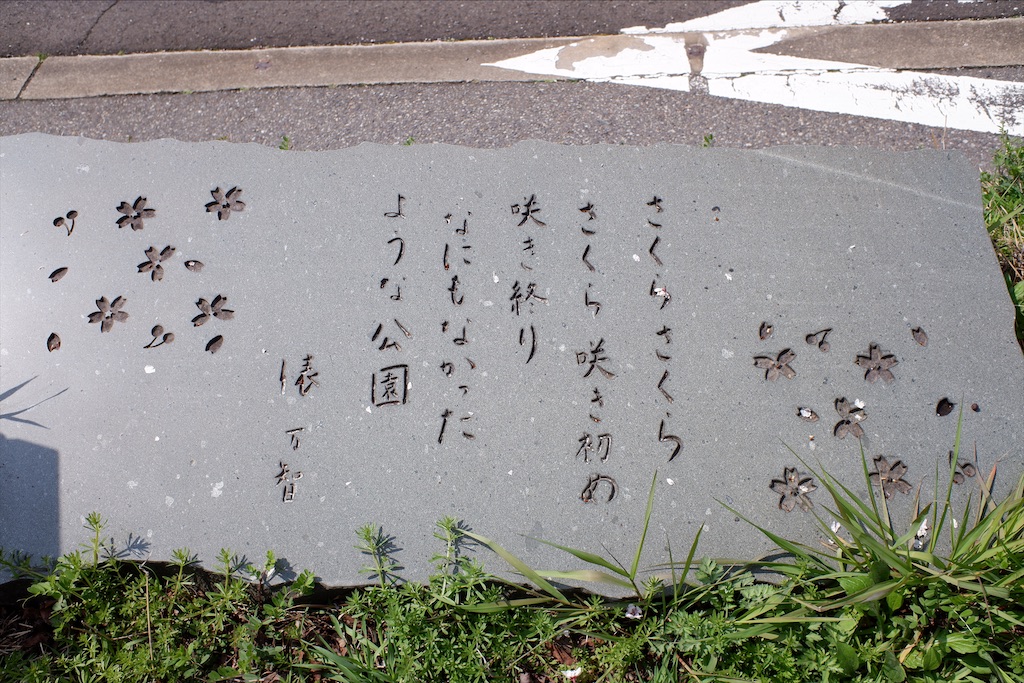 さくらさくら
さくら咲き初め
咲き終り
なにもなかった
ような公園
俵万智